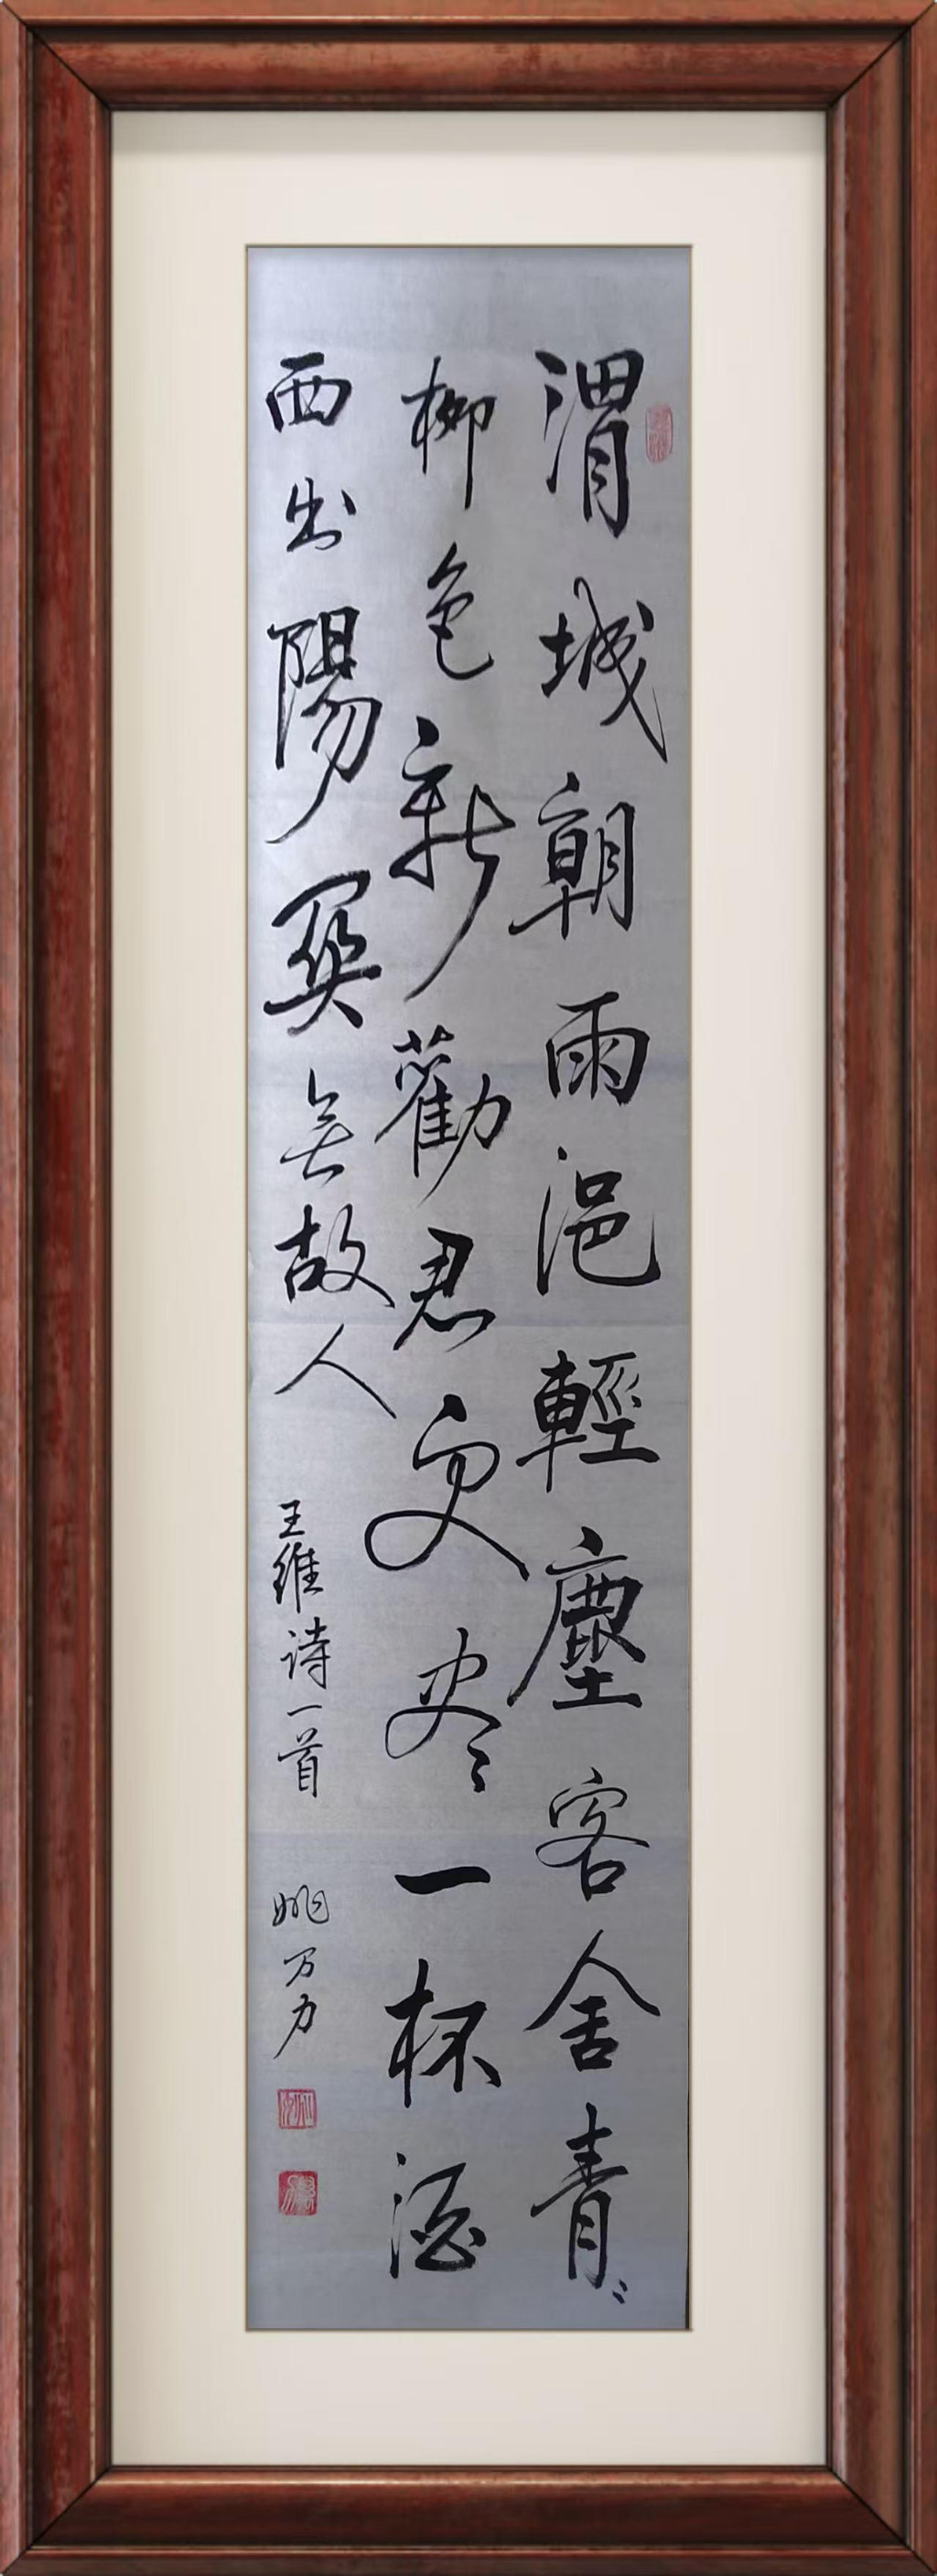 渭城朝雨浥輕塵客舍青〻
柳色新勸君更尽一杯酒
西出陽関無故人
王维诗一首
姚万力